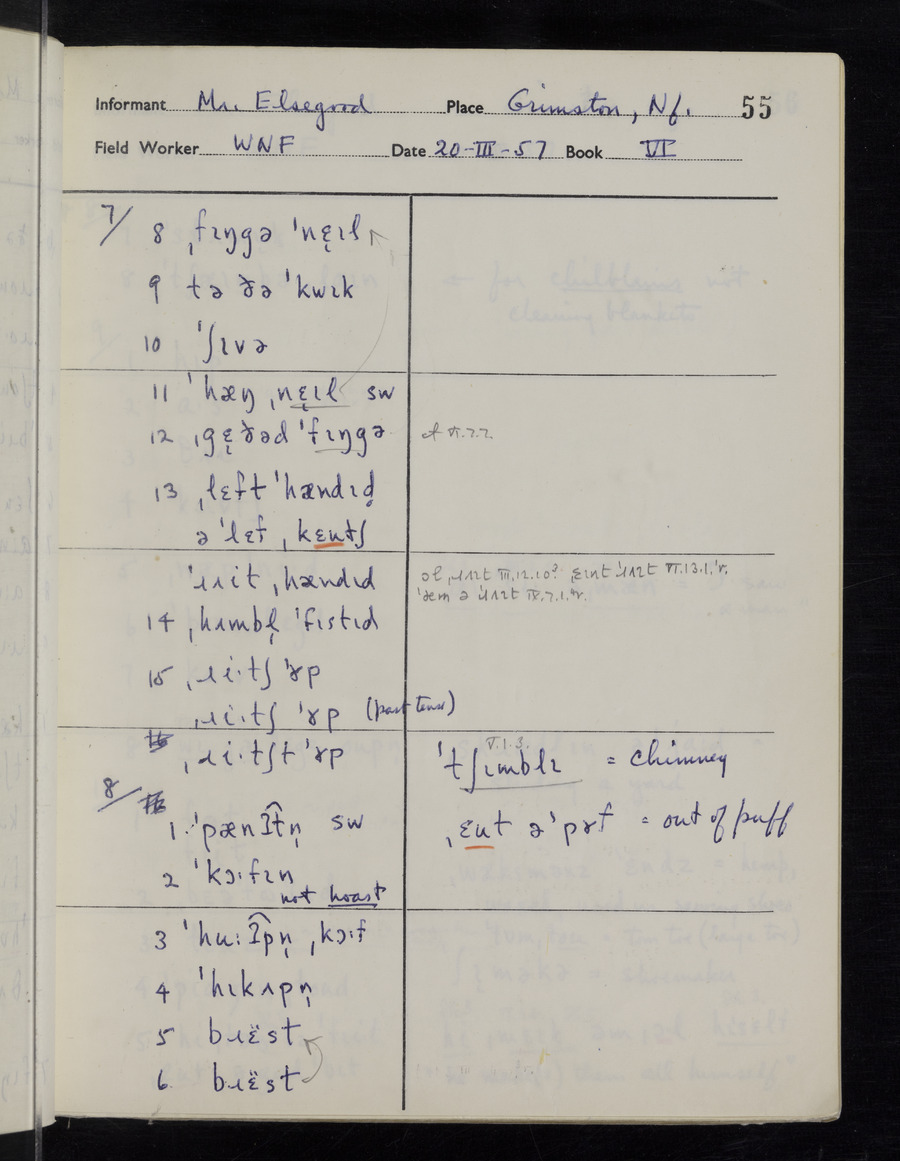 Informant Mr. Elsegood Place Grimston, Nf. 55
Field Worker WNF Date 20-III-57 Book VI
7/ 8 ˌfɪŋgə ˈnɛ̣ɪl
9 tə ðə ˈkwɪk
10 ˈʃɪvə
11 ˈhæŋ ˌnɛ̣ɪl sw
12 ˌgɛ̣ðəd ˈfɪŋgə
cf VI.7.7.
13 ˌlɛft ˈhændɪd̥
ə ˈlɛf ˌkɛutʃ
ˈɹɪit ˌhændɪd
14 ˌhɪmbl̩ ˈfistɪd
15 ˌɹi·tʃ ˈɤp
ˌɹi·tʃ ˈɤp (past tense)
ˌɹi·tʃt ˈɤp
V.1.3.
ˈtʃɪmblɪ = chimney
8/
1 ˈpænʔ͡tn̩ sw
ˌɛut əˈpɤf = out of puff
2 ˈkɔːfɪn
not hoast
3 ˈhuːʔ͡pn̩ ˌkɔːf
4 ˈhɪkʌpn̩
5 bɹëst
6 bɹëst